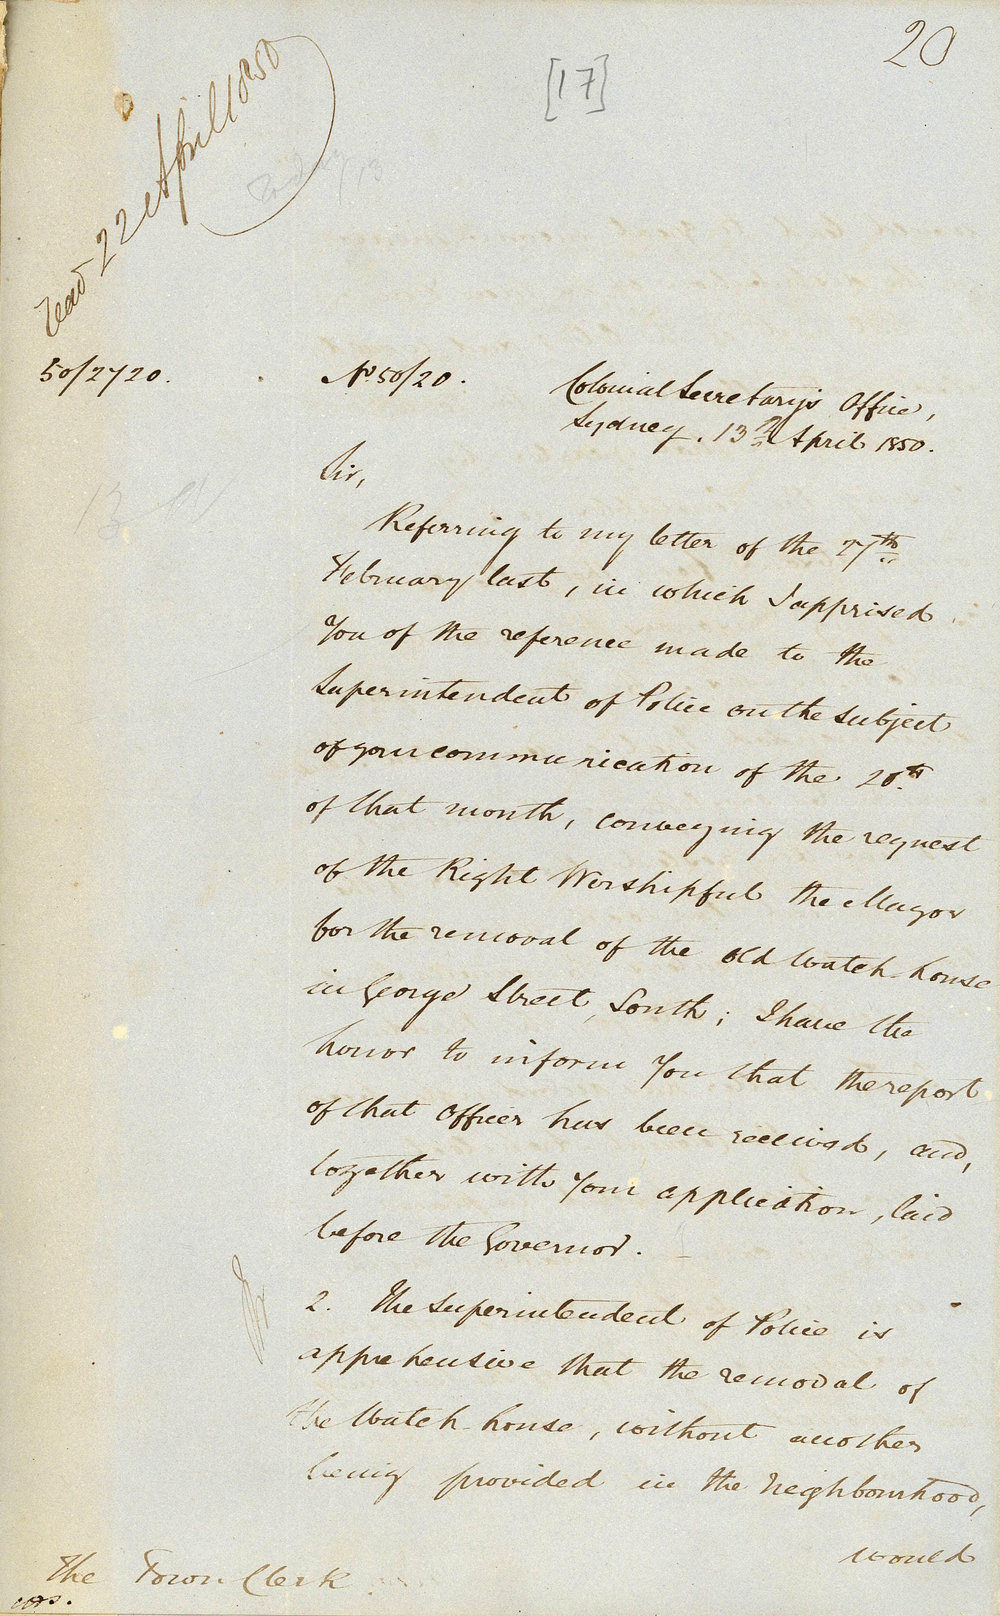 20
[17]
Read 22 April 1850
50/2720.
No. 50/20.
Colonial Secretary's Office,
Sydney. 13th April 1850.
Sir,
Referring to my letter of the 27th
February last, in which I apprised
You of the reference made to the
Superintendent of Police on the subject
of your communication of the 20th
of that month, conveying the request
of the Right Worshipful the Mayor
for the removal of the old Watch house
in George Street South; I have the
honor to inform You that the report
of that Officer has been received, and,
together with Your application, laid
before the Governor.
2. The Superintendent of Police is
apprehensive that the removal of
the Watch-house, without another
being provided in the Neighbourhood,
would
The Town Clerk